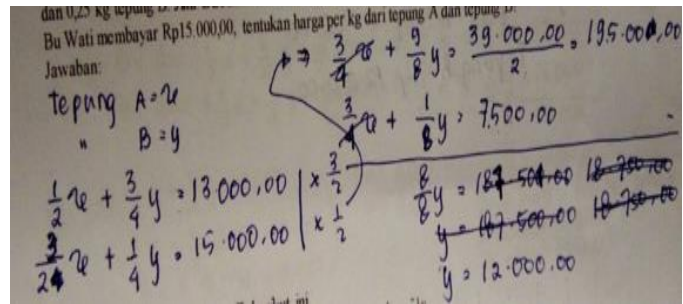 dan 0,25 kg tepung B.
Bu Wati membayar Rp15.000,00, tentukan harga per kg dari tepung A dan tepung B.
Jawaban:
tepung A = x
" B = y
1/2 x + 3/4 y = 13000,00 | x 3/2
3/2 x + 1/4 y = 15.000,00 | x 1/2
⇒ 3/4 x + 9/8 y = 39.000,00/2 = 195.000,00
3/4 x + 1/8 y = 7.500,00
8/8 y = 187.500,00 18.750,00
y = 187.500,00 18.750,00
y = 12.000.00